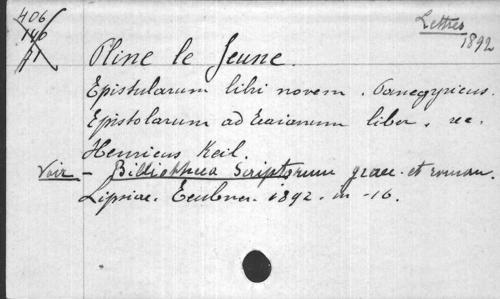 406
Lettres
140
1892
71
Pline le Jeune.
Epistularum libri novem. Panegyricus.
Epistolarum ad Traianum liber. rec.
Henricus Keil.
Voir - Bibliotheca Scriptorum graec. et roman.
Lipsiae. Teubner. 1892. in-16.